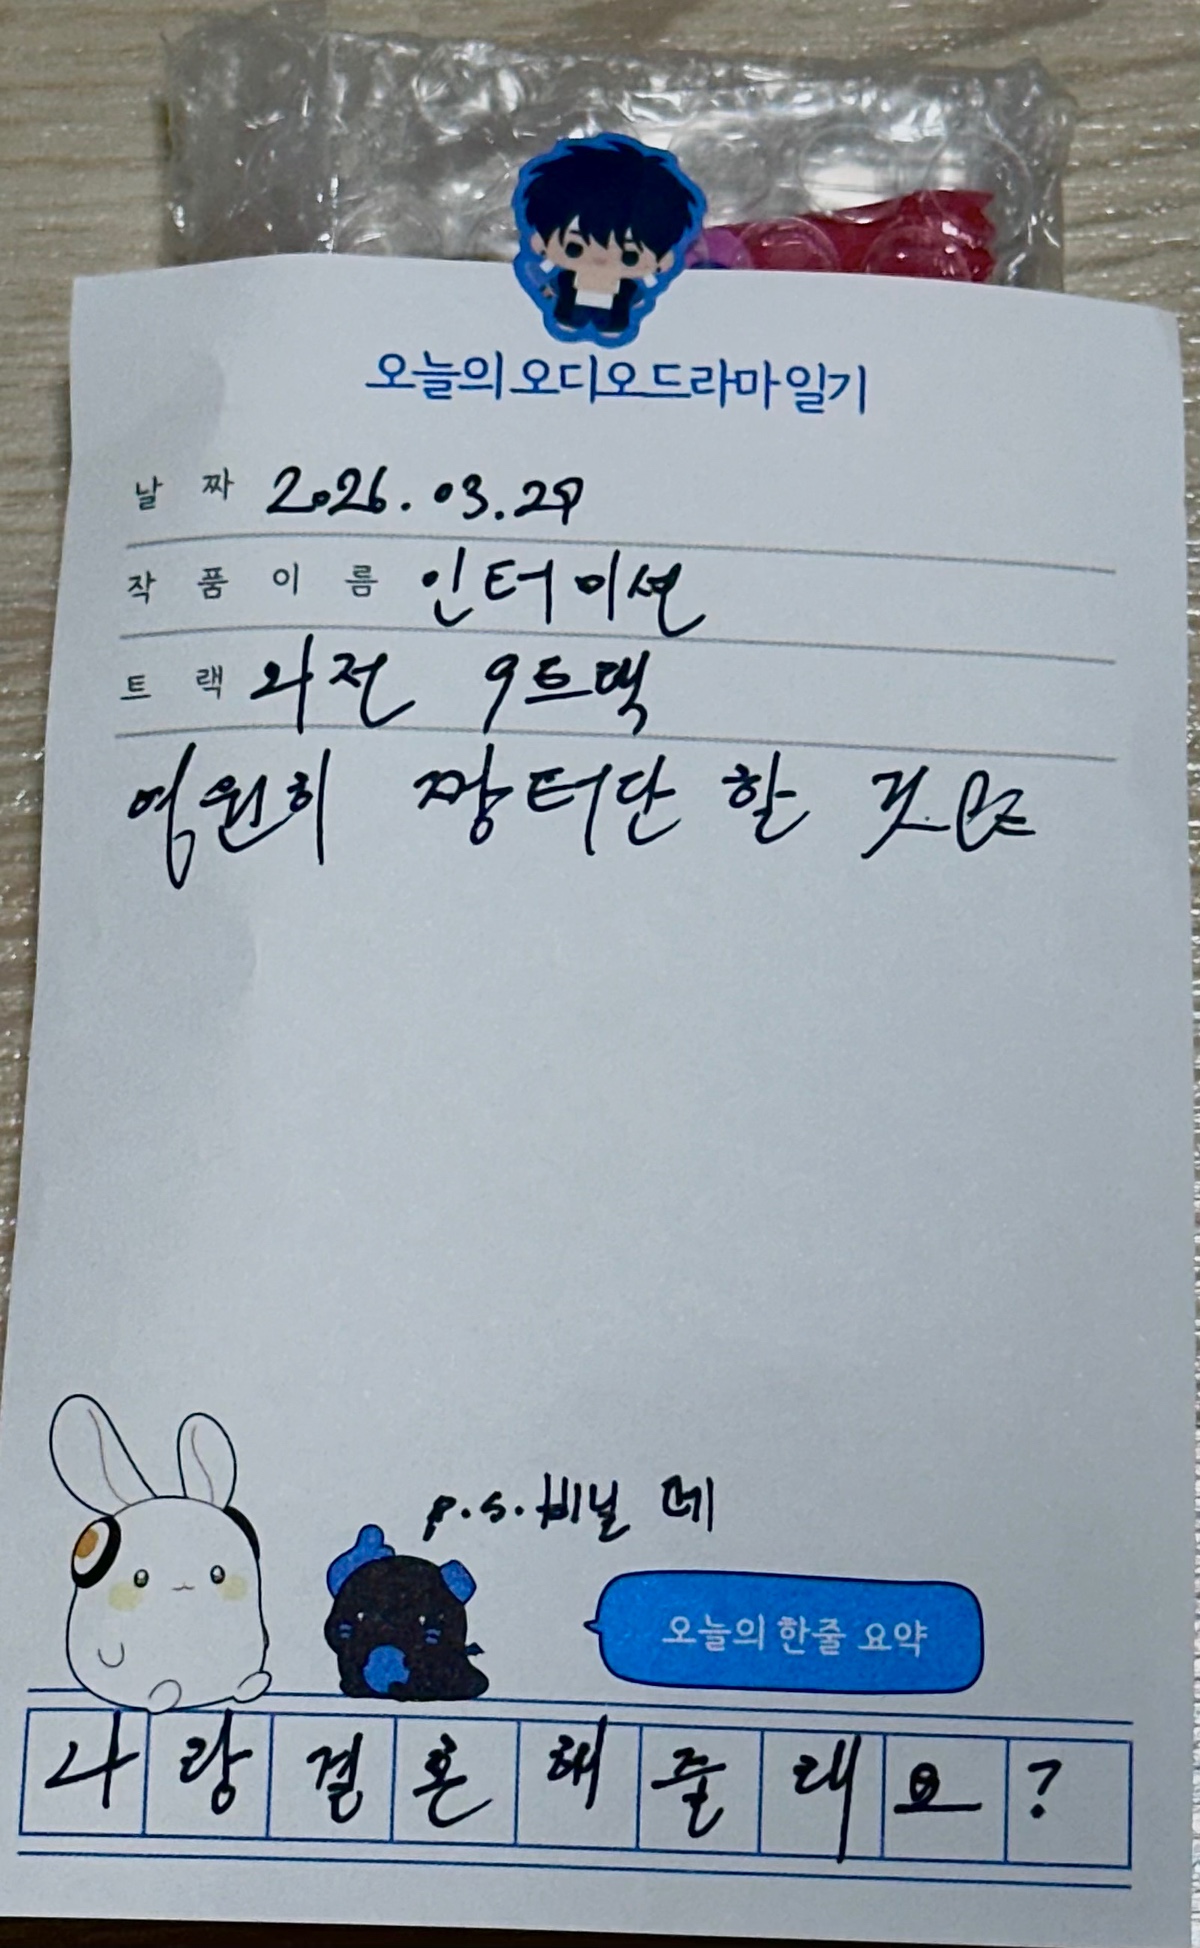 오늘의 오디오드라마 일기
날짜 2026.03.29
작품이름 인터미션
트랙 외전 9트랙
영원히 짱터단 할 것
p.s. 비닐
오늘의 한줄 요약
나랑결혼해줄래요?